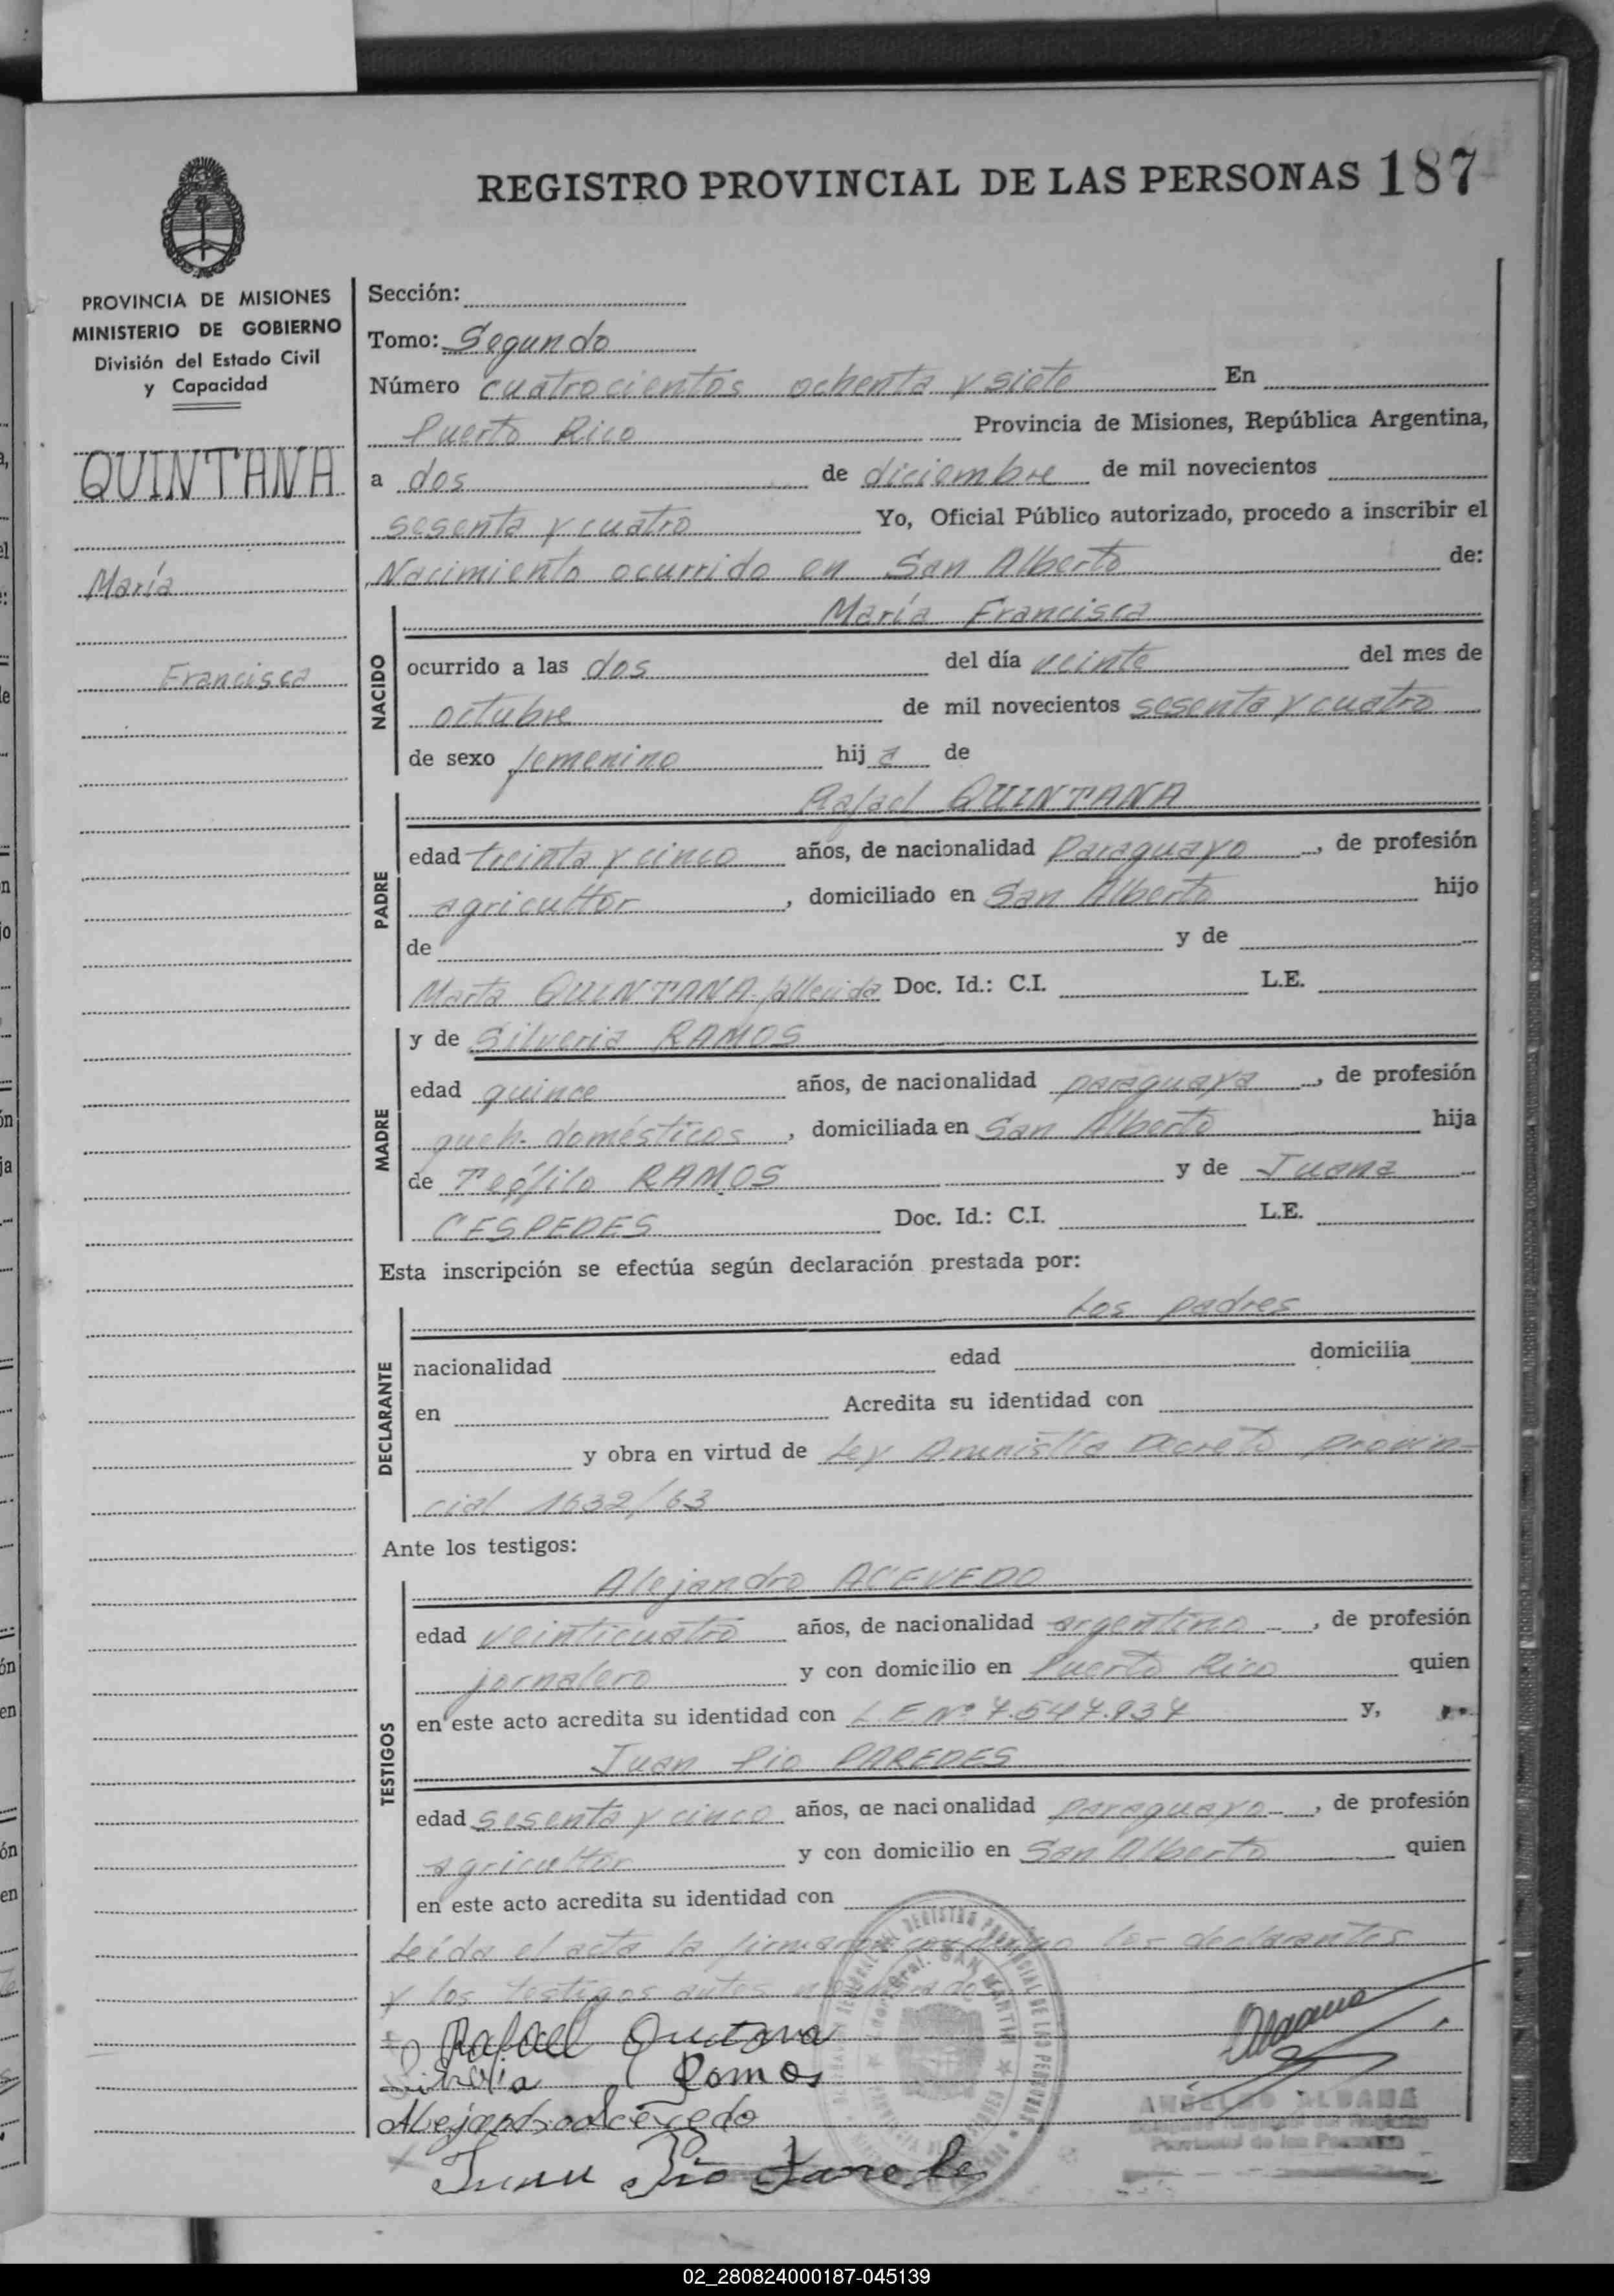 REGISTRO PROVINCIAL DE LAS PERSONAS 187
PROVINCIA DE MISIONES
MINISTERIO DE GOBIERNO
División del Estado Civil
y Capacidad
QUINTANA
María
Francisca
Sección:
Tomo: Segundo
Número cuatrocientos ochenta y siete En
Puerto Rico Provincia de Misiones, República Argentina,
a dos de diciembre de mil novecientos
sesenta y cuatro Yo, Oficial Público autorizado, procedo a inscribir el
Nacimiento ocurrido en San Alberto de:
NACIDO
María Francisca
ocurrido a las dos del día veinte del mes de
octubre de mil novecientos sesenta y cuatro
de sexo femenino hij a de
PADRE
Rafael QUINTANA
edad treinta y cinco años, de nacionalidad Paraguayo, de profesión
agricultor, domiciliado en San Alberto hijo
de y de
Marta QUINTANA fallecida Doc. Id.: C.I. L.E.
MADRE
y de Silveria RAMOS
edad quince años, de nacionalidad paraguaya, de profesión
queh. domésticos, domiciliada en San Alberto hija
de Teófilo RAMOS y de Juana
CESPEDES Doc. Id.: C.I. L.E.
Esta inscripción se efectúa según declaración prestada por:
DECLARANTE
Los padres
nacionalidad edad domicilia
en Acredita su identidad con
y obra en virtud de Ley Amnistía Decreto provin-
cial 1632/63
Ante los testigos:
TESTIGOS
Alejandro ACEVEDO
edad veinticuatro años, de nacionalidad argentino -, de profesión
jornalero y con domicilio en Puerto Rico quien
en este acto acredita su identidad con L.E Nº 7.547.934 y,
Juan Pio PAREDES
edad sesenta y cinco años, de nacionalidad paraguayo -, de profesión
agricultor y con domicilio en San Alberto quien
en este acto acredita su identidad con
Leída el acta la firman conmigo los declarantes
y los testigos antes
Rafael Quintana
Silveria Ramos
Alejandro Acevedo
Juan Pio Paredes
REGISTRO PROVINCIAL DE LAS PERSONAS
Gral. SAN MARTIN
ALDANA
Provincial de las Personas
02_280824000187-045139